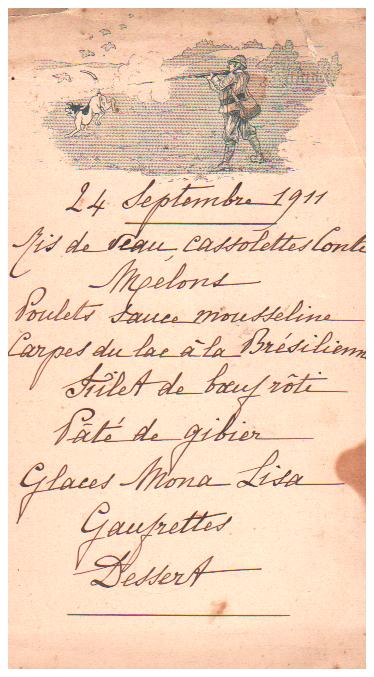 24 Septembre 1911
Ris de veau, cassolettes Conté
Melons
Poulets sauce mousseline
Carpes du lac à la Brésilienn
Filet de bœuf rôti
Pâté de gibier
Glaces Mona Lisa
Gaufrettes
Dessert